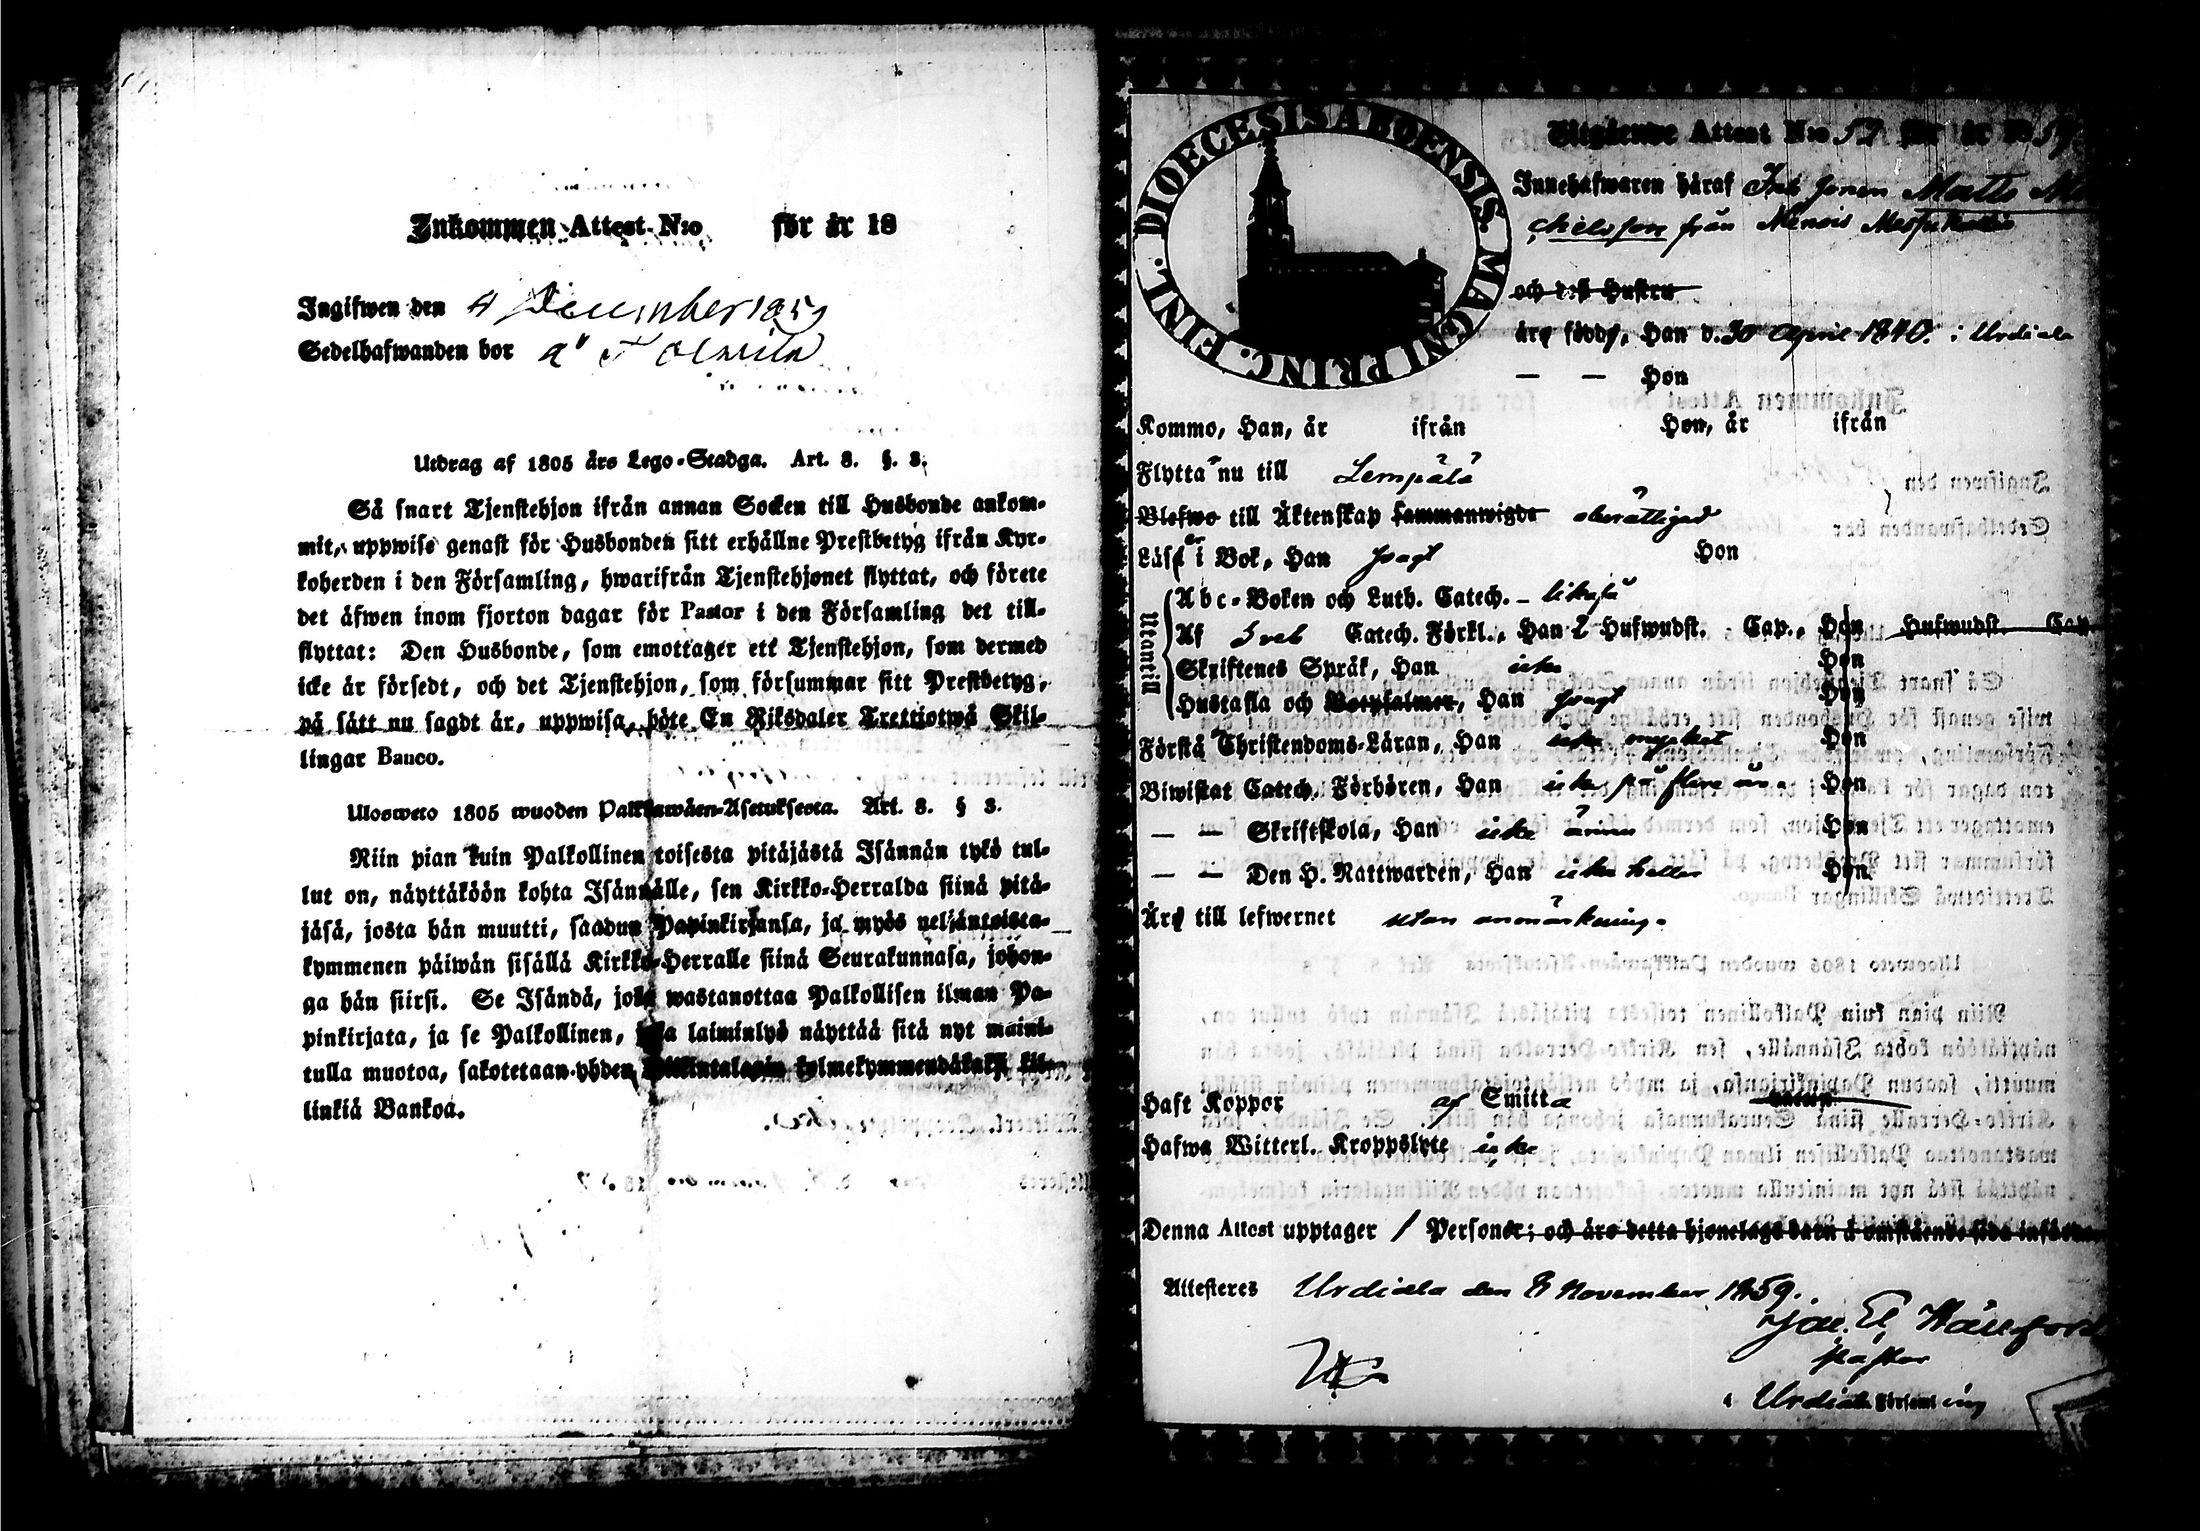 Inkommen Attest N:o för år 18
Ingifwen den 4 December 1859
Sedelhafwanden bor å
Utdrag af 1805 års Lego-Stadga. Art. 8. §. 3.
Så snart Tjenstehjon ifrån annan Socken till Husbonde ankom-
mit, uppwise genast för Husbonden sitt erhållne Prestbetyg ifrån Kyr-
koherden i den Församling, hwarifrån Tjenstehjonet flyttat, och förete
det äfwen inom fjorton dagar för Pastor i den Församling det till-
flyttat: Den Husbonde, som emottager ett Tjenstehjon, som dermed
icke är försedt, och det Tjenstehjon, som försummar sitt Prestbetyg,
på sätt nu sagdt är, uppwisa, böte En Riksdaler Trettiotwå Skil-
lingar Banco.
Ulosweto 1805 wuoden Palkkawäen-Asetuksesta. Art. 8. § 3.
Niin pian kuin Palkollinen toisesta pitäjästä Isännän tykö tul-
lut on, näyttäköön kohta Isännälle, sen Kirkko-Herralda siinä pitä-
jäsä, josta hän muutti, saadun Papinkirjansa, ja myös neljäntoista-
kymmenen päiwän sisällä Kirkko-Herralle siinä Seurakunnasa, johon-
ga hän siirsi. Se Isändä, joka wastanottaa Palkollisen ilman Pa-
pinkirjata, ja se Palkollinen, joka laiminlyö näyttää sitä nyt maini-
tulla muotoa, sakotetaan yhden Riikintalarin kolmekymmendäkaksi kil-
linkiä Bankoa.
DIOECESIS ABOENSIS. MAGNI PRINC. FINL.
Utgående Attest N:o 52 för år 1859
Innehafwaren häraf Matts Mi
chelsson från Menois
och des Hustru
äro födde, Han d. 30 April 1840. i Urdiala
— — Hon
Kommo, Han, år ifrån Hon, år ifrån
Flytta nu till Lempälä
Blefwo till Äktenskap sammanwigde oberättigad
Läser i Bok, Han swagt Hon
Utantill
Abc-Boken och Luth. Catech. likaså
Af Sveb Catech. Förkl., Han 2 Hufwudst. Cap., Hon Hufwudst. Cap
Skriftenes Språk, Han icke Hon
Hustafla och Botpsalmer, Han swagt Hon
Förstå Christendoms-Läran, Han icke mycket Hon
Biwistat Catech. Förhören, Han icke på flere år. Hon
— — Skriftskola, Han icke ännu Hon
— — Den H. Nattwarden, Han icke heller Hon
Äro till lefwernet utan anmärkning.
Haft Koppor af Smitta
Hafwa Witterl. Kroppslyte icke
Denna Attest upptager 1 Personer; och äro detta hjonelags barn å omstående sida införde
Attesteres Urdiala den 8 November 1859.
Pastor
i Urdiala Församling